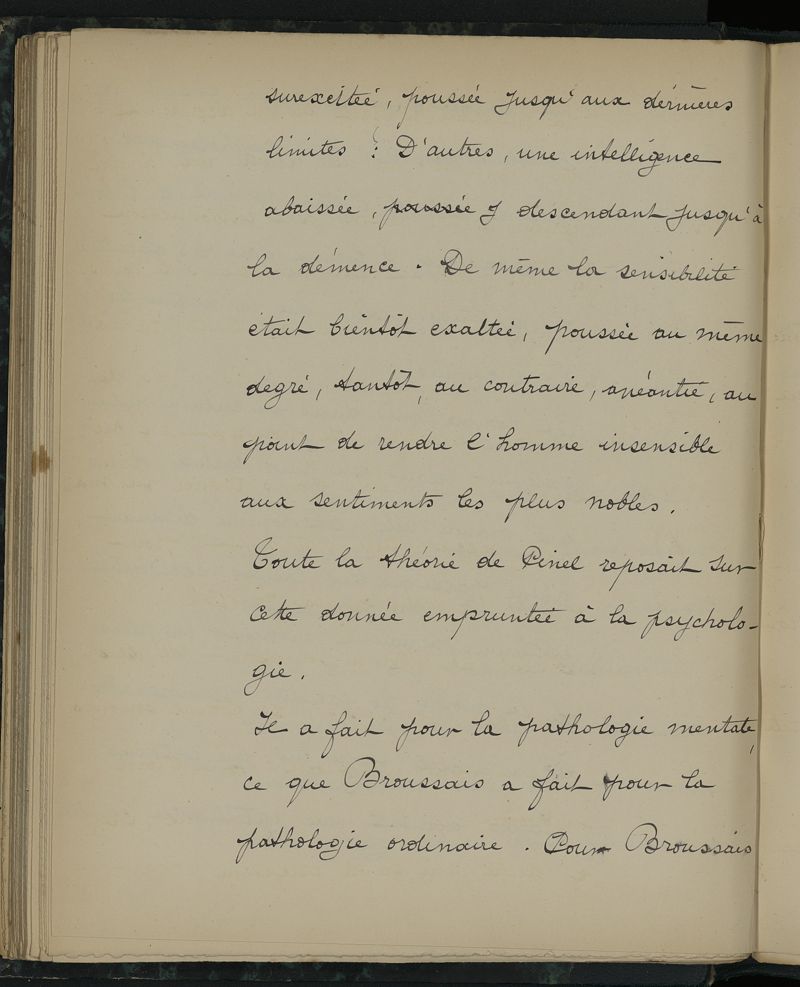 surexcitée, poussée jusqu'aux dérnières
limites ; D'autres, une intelligence
abaissée, poussée descendant jusqu'à
la démence. De même la sensibilité
était bientôt exaltée, poussée au même
degré, tantôt, au contraire, anéantie, au
point de rendre l'homme insensible
aux sentiments les plus nobles.
Toute la théorie de Pinel reposait sur
cette donnée empruntée à la psycholo-
gie.
Il a fait pour la pathologie mentale,
ce que Broussais a fait pour la
pathologie ordinaire. Pour Broussais